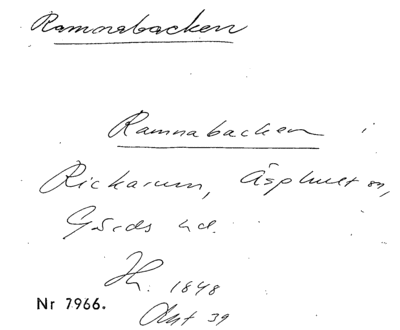 Ramnabacken
Ramnabacken i
Rickarum, Äsphult sn,
Gärds hd.
Hl. 1848
Akt 39
Nr 7966.